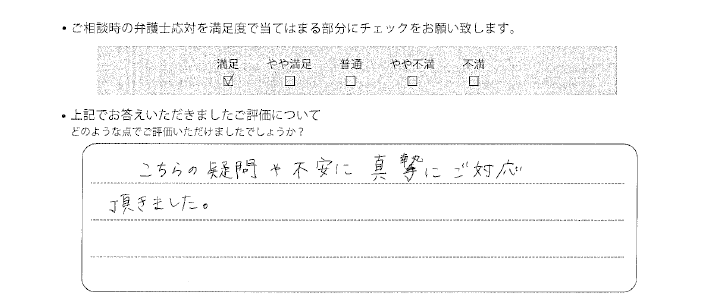 ・ご相談時の弁護士応対を満足度で当てはまる部分にチェックをお願い致します。
満足 やや満足 普通 やや不満 不満
☑ □ □ □ □
・上記でお答えいただきましたご評価について
どのような点でご評価いただけましたでしょうか？
こちらの疑問や不安に真摯にご対応
頂きました。